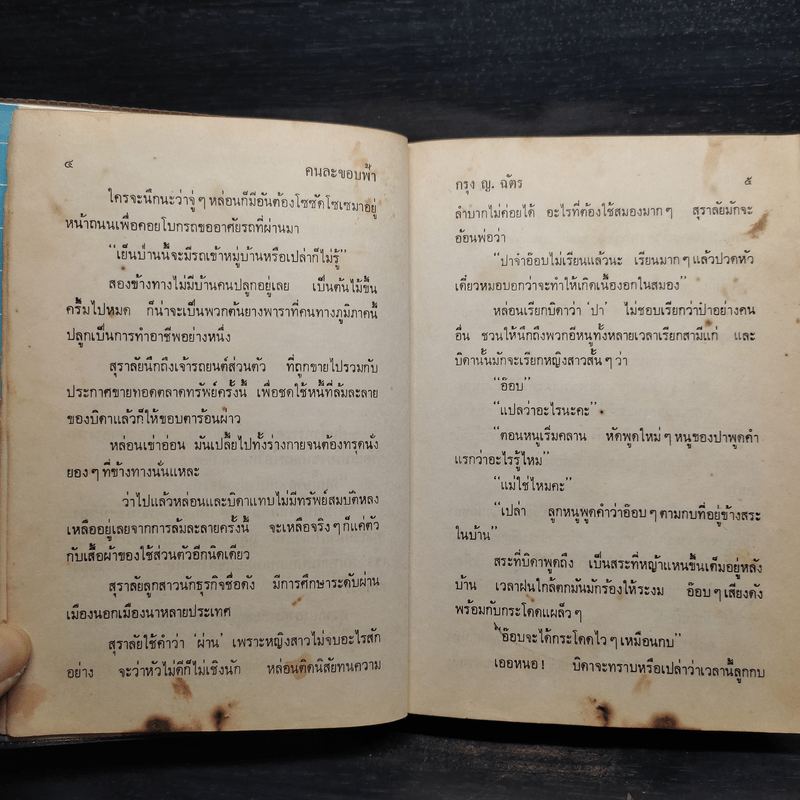 ๔
คนละขอบฟ้า
ใครจะนึกนะว่าจู่ ๆ หล่อนก็มีอันต้องโซซัดโซเซมาอยู่
หน้าถนนเพื่อคอยโบกรถขออาศัยรถที่ผ่านมา
“เย็นป่านนี้จะมีรถเข้าหมู่บ้านหรือเปล่าก็ไม่รู้”
สองข้างทางไม่มีบ้านคนปลูกอยู่เลย เป็นต้นไม้ขึ้น
ครึ้มไปหมด ก็น่าจะเป็นพวกต้นยางพาราที่คนทางภูมิภาคนี้
ปลูกเป็นการทำอาชีพอย่างหนึ่ง
สุราลัยนึกถึงเจ้ารถยนต์ส่วนตัว ที่ถูกขายไปรวมกับ
ประกาศขายทอดตลาดทรัพย์ครั้งนี้ เพื่อชดใช้หนี้ที่ล้มละลาย
ของบิดาแล้วก็ให้ขอบตาร้อนผ่าว
หล่อนเข่าอ่อน มันเปลี้ยไปทั้งร่างกายจนต้องทรุดนั่ง
ยอง ๆ ที่ข้างทางนั่นแหละ
ว่าไปแล้วหล่อนและบิดาแทบไม่มีทรัพย์สมบัติหลง
เหลืออยู่เลยจากการล้มละลายครั้งนี้ จะเหลือจริง ๆ ก็แค่ตัว
กับเสื้อผ้าของใช้ส่วนตัวอีกนิดเดียว
สุราลัยลูกสาวนักธุรกิจชื่อดัง มีการศึกษาระดับผ่าน
เมืองนอกเมืองนาหลายประเทศ
สุราลัยใช้คำว่า ‘ผ่าน’ เพราะหญิงสาวไม่จบอะไรสัก
อย่าง จะว่าหัวไม่ดีก็ไม่เชิงนัก หล่อนติดนิสัยทนความ
กรุง ญ. ฉัตร
๕
ลำบากไม่ค่อยได้ อะไรที่ต้องใช้สมองมาก ๆ สุราลัยมักจะ
อ้อนพ่อว่า
“ปาจ๋าอ๊อบไม่เรียนแล้วนะ เรียนมาก ๆ แล้วปวดหัว
เดี๋ยวหมอบอกว่าจะทำให้เกิดเนื้องอกในสมอง”
หล่อนเรียกบิดาว่า ‘ปา’ ไม่ชอบเรียกว่าป๋าอย่างคน
อื่น ชวนให้นึกถึงพวกอีหนูทั้งหลายเวลาเรียกสามีแก่ และ
บิดานั้นมักจะเรียกหญิงสาวสั้น ๆ ว่า
“อ๊อบ”
“แปลว่าอะไรนะคะ”
“ตอนหนูเริ่มคลาน หัดพูดใหม่ ๆ หนูของปาพูดคำ
แรกว่าอะไรรู้ไหม”
“แม่ใช่ไหมคะ”
“เปล่า ลูกหนูพูดคำว่าอ๊อบ ๆ ตามกบที่อยู่ข้างสระ
ในบ้าน”
สระที่บิดาพูดถึง เป็นสระที่หญ้าแหนขึ้นเต็มอยู่หลัง
บ้าน เวลาฝนใกล้ตกมันมักร้องให้ระงม อ๊อบ ๆ เสียงดัง
พร้อมกับกระโดดแผล็ว ๆ
“อ๊อบจะได้กระโดดไว ๆ เหมือนกบ”
เออหนอ ! บิดาจะทราบหรือเปล่าว่าเวลานี้ลูกกบ